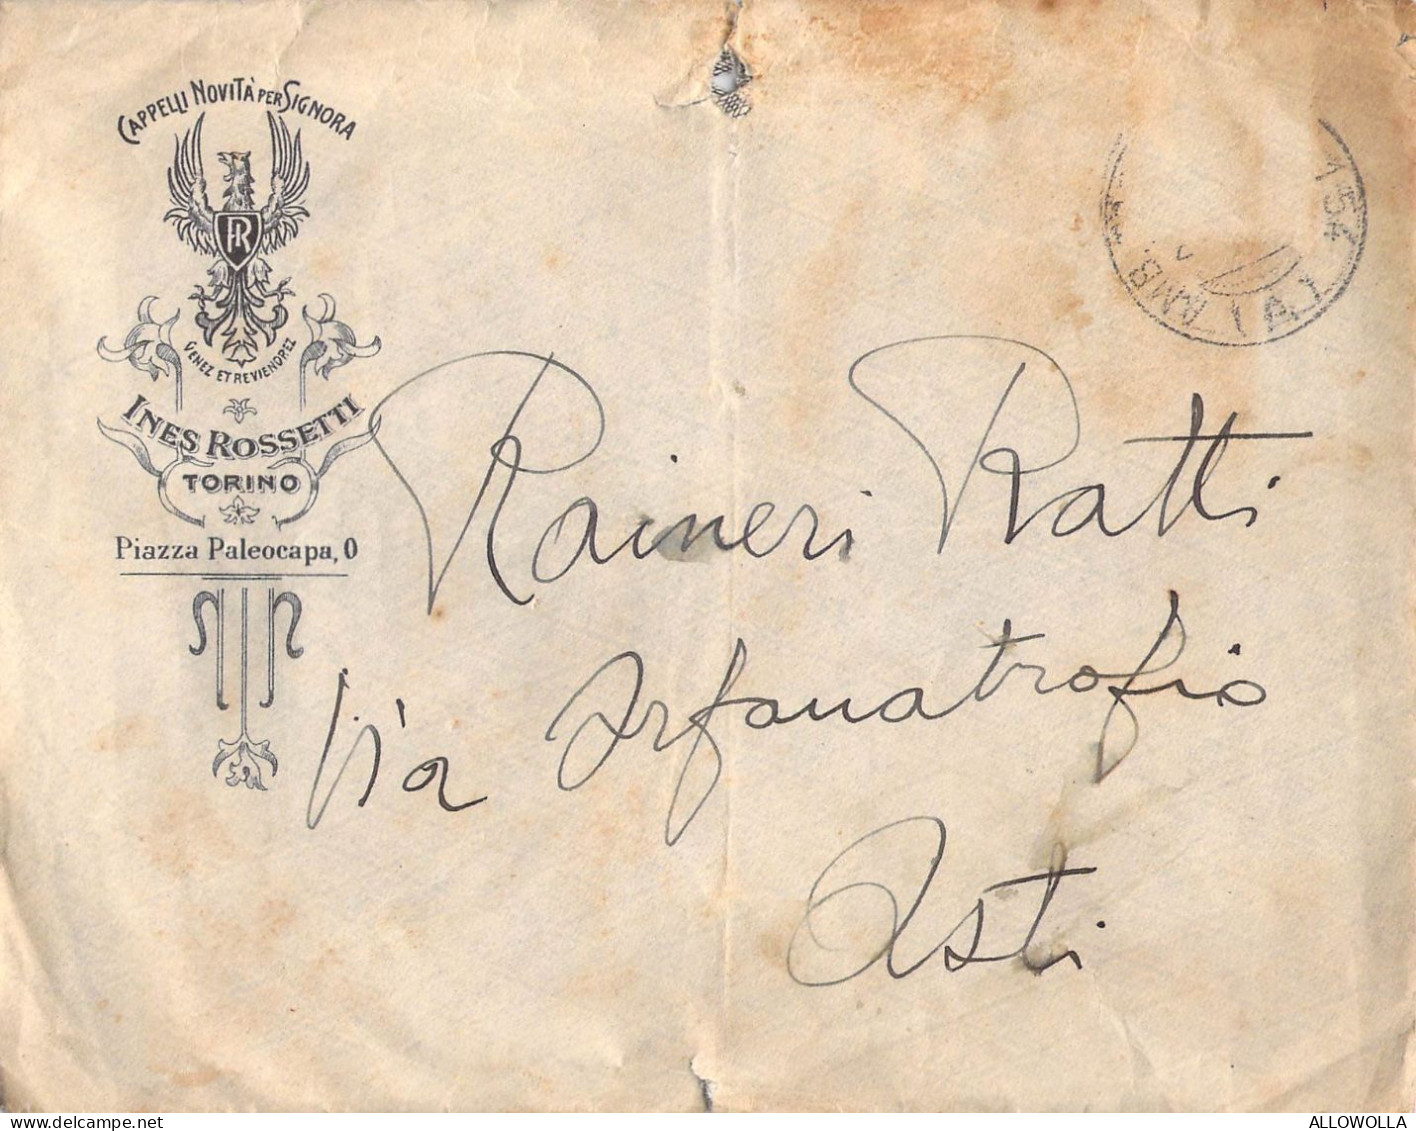 CAPPELLI NOVITÀ PER SIGNORA
VENEZ ET REVIENDREZ
INES ROSSETTI
TORINO
Piazza Paleocapa, 0
Raineri Ratti
Via Orfanatrofio
Asti
154
AMB.
ALLOWOLLA